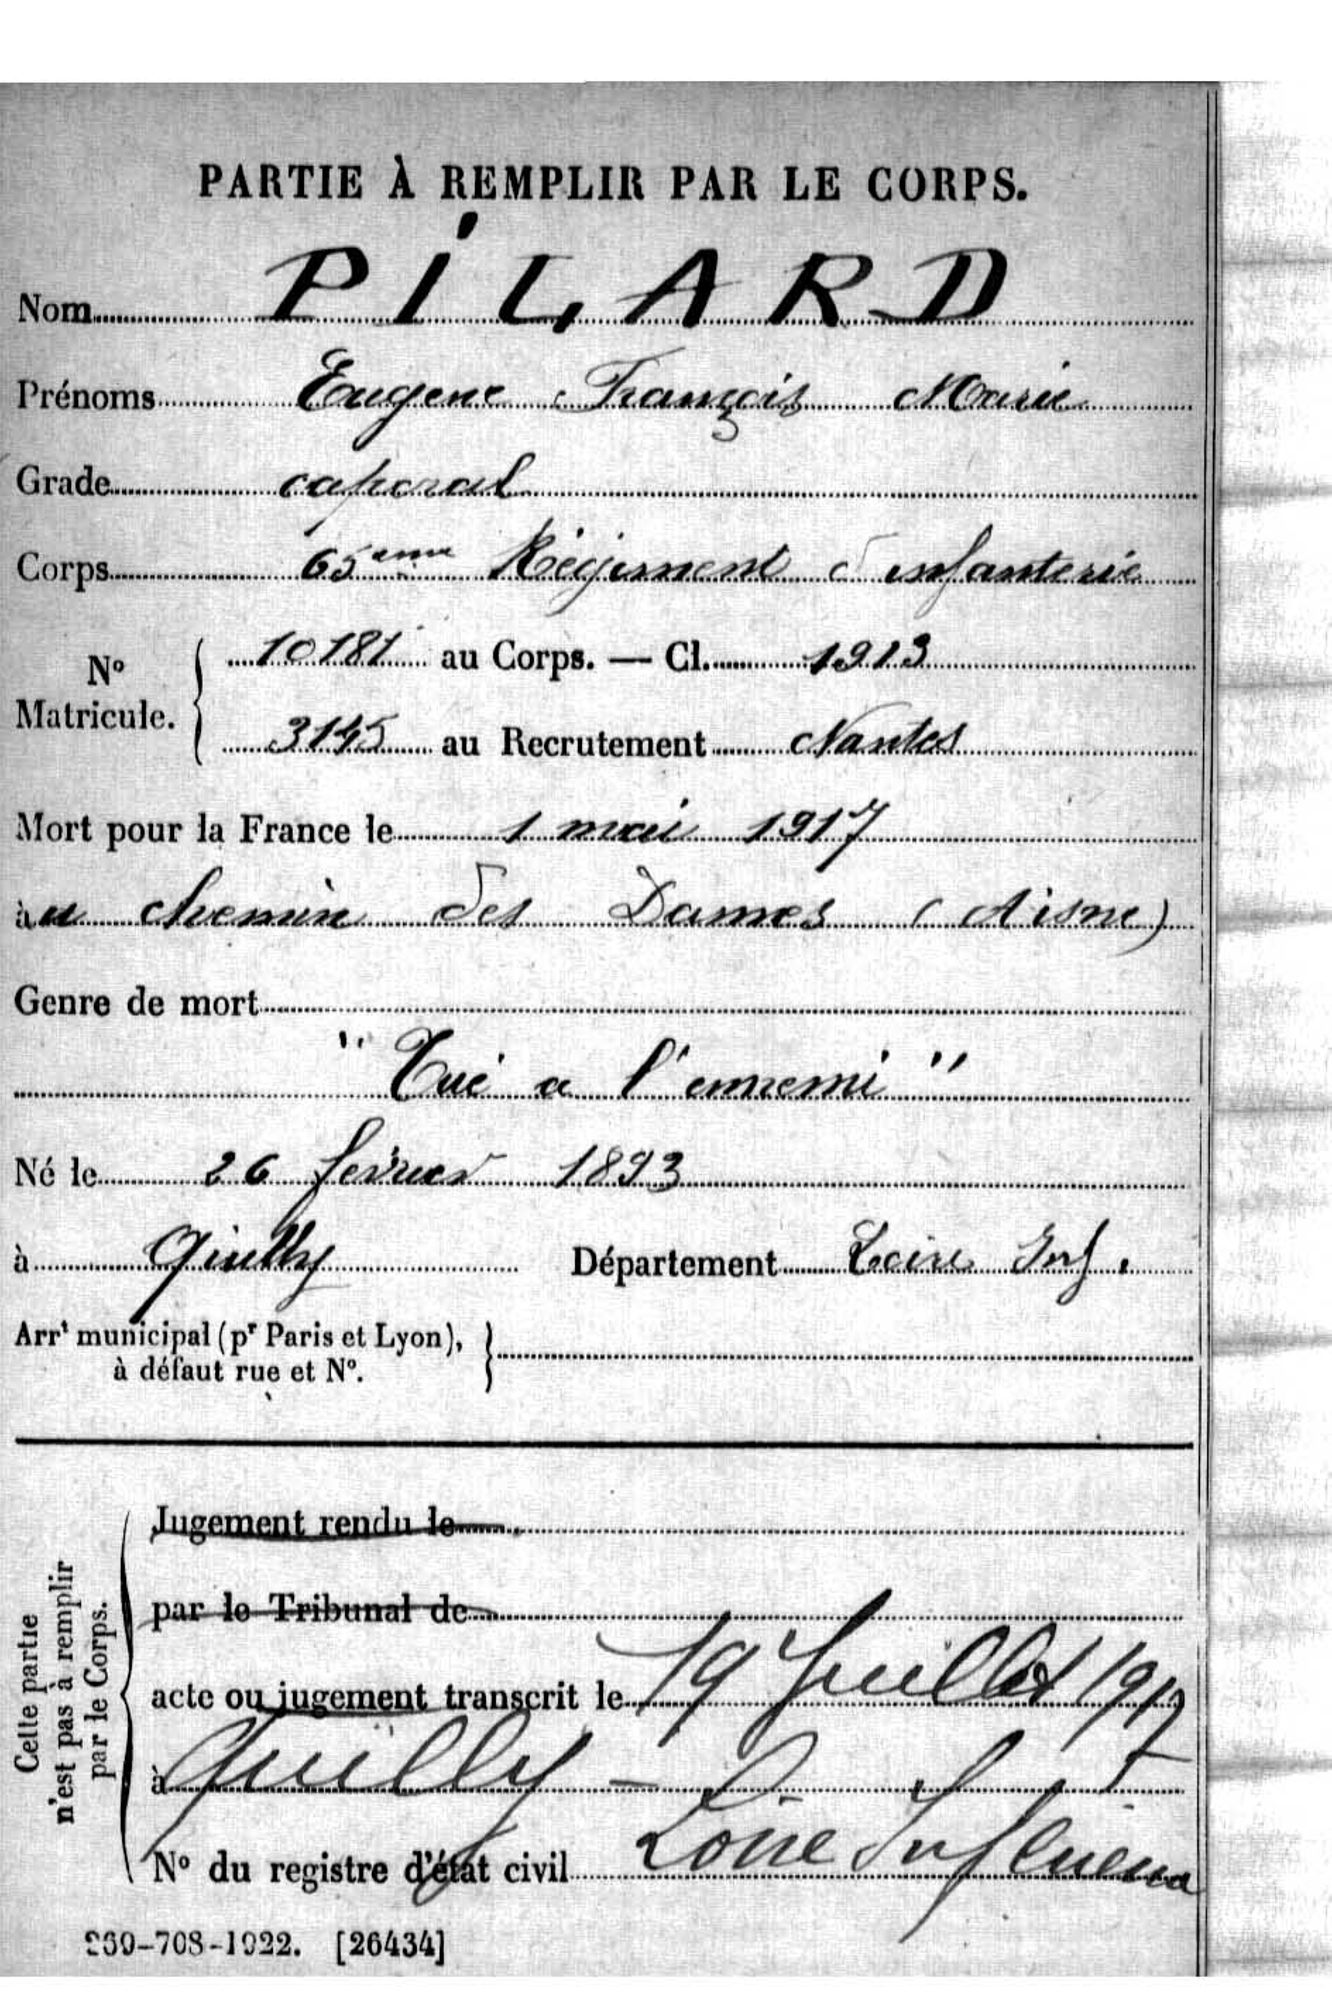 PARTIE À REMPLIR PAR LE CORPS.
Nom PILARD
Prénoms Eugene François Marie
Grade caporal
Corps 65eme Régiment d'infanterie
No Matricule. { 10181 au Corps. — Cl. 1913
3145 au Recrutement Nantes
Mort pour la France le 1 mai 1917
au chemin des Dames (Aisne)
Genre de mort
"Tué a l'ennemi"
Né le 26 fevrier 1893
à Quilly Département Loire Inf.
Arrt municipal (pr Paris et Lyon), }
à défaut rue et No.
Cette partie
n'est pas à remplir
par le Corps.
Jugement rendu le
par le Tribunal de
acte ou jugement transcrit le 19 Juillet 1917
à Quilly - Loire Inférieure
No du registre d'état civil
260-708-1922. [26434]